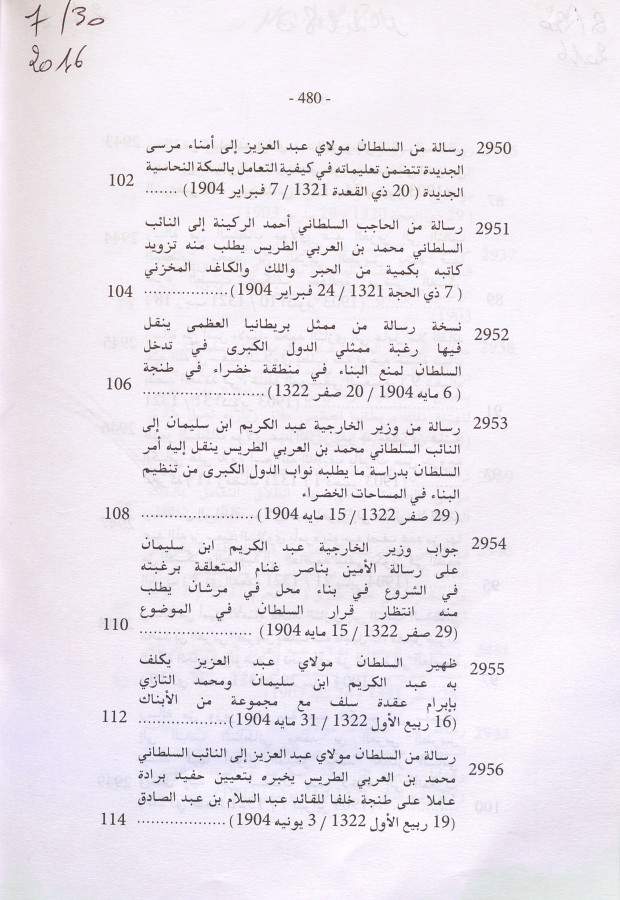 7/30
2016
- 480 -
2950 رسالة من السلطان مولاي عبد العزيز إلى أمناء مرسى
الجديدة تتضمن تعليماته في كيفية التعامل بالسكة النحاسية
الجديدة ( 20 ذي القعدة 1321 / 7 فبراير 1904) ....... 102
2951 رسالة من الحاجب السلطاني أحمد الركينة إلى النائب
السلطاني محمد بن العربي الطريس يطلب منه تزويد
كاتبه بكمية من الحبر واللك والكاغد المخزني
( 7 ذي الحجة 1321 / 24 فبراير 1904)................... 104
2952 نسخة رسالة من ممثل بريطانيا العظمى ينقل
فيها رغبة ممثلي الدول الكبرى في تدخل
السلطان لمنع البناء في منطقة خضراء في طنجة
( 6 مايه 1904 / 20 صفر 1322)......................... 106
2953 رسالة من وزير الخارجية عبد الكريم ابن سليمان إلى
النائب السلطاني محمد بن العربي الطريس ينقل إليه أمر
السلطان بدراسة ما يطلبه نواب الدول الكبرى من تنظيم
البناء في المساحات الخضراء
( 29 صفر 1322 / 15 مايه 1904)....................... 108
2954 جواب وزير الخارجية عبد الكريم ابن سليمان
على رسالة الأمين بناصر غنام المتعلقة برغبته
في الشروع في بناء محل في مرشان يطلب
منه انتظار قرار السلطان في الموضوع
(29 صفر 1322 / 15 مايه 1904) ....................... 110
2955 ظهير السلطان مولاي عبد العزيز يكلف
به عبد الكريم ابن سليمان ومحمد التازي
بإبرام عقدة سلف مع مجموعة من الأبناك
(16 ربيع الأول 1322 / 31 مايه 1904).................. 112
2956 رسالة من السلطان مولاي عبد العزيز إلى النائب السلطاني
محمد بن العربي الطريس يخبره بتعيين حفيد برادة
عاملا على طنجة خلفا للقائد عبد السلام بن عبد الصادق
(19 ربيع الأول 1322 / 3 يونيه 1904).................. 114